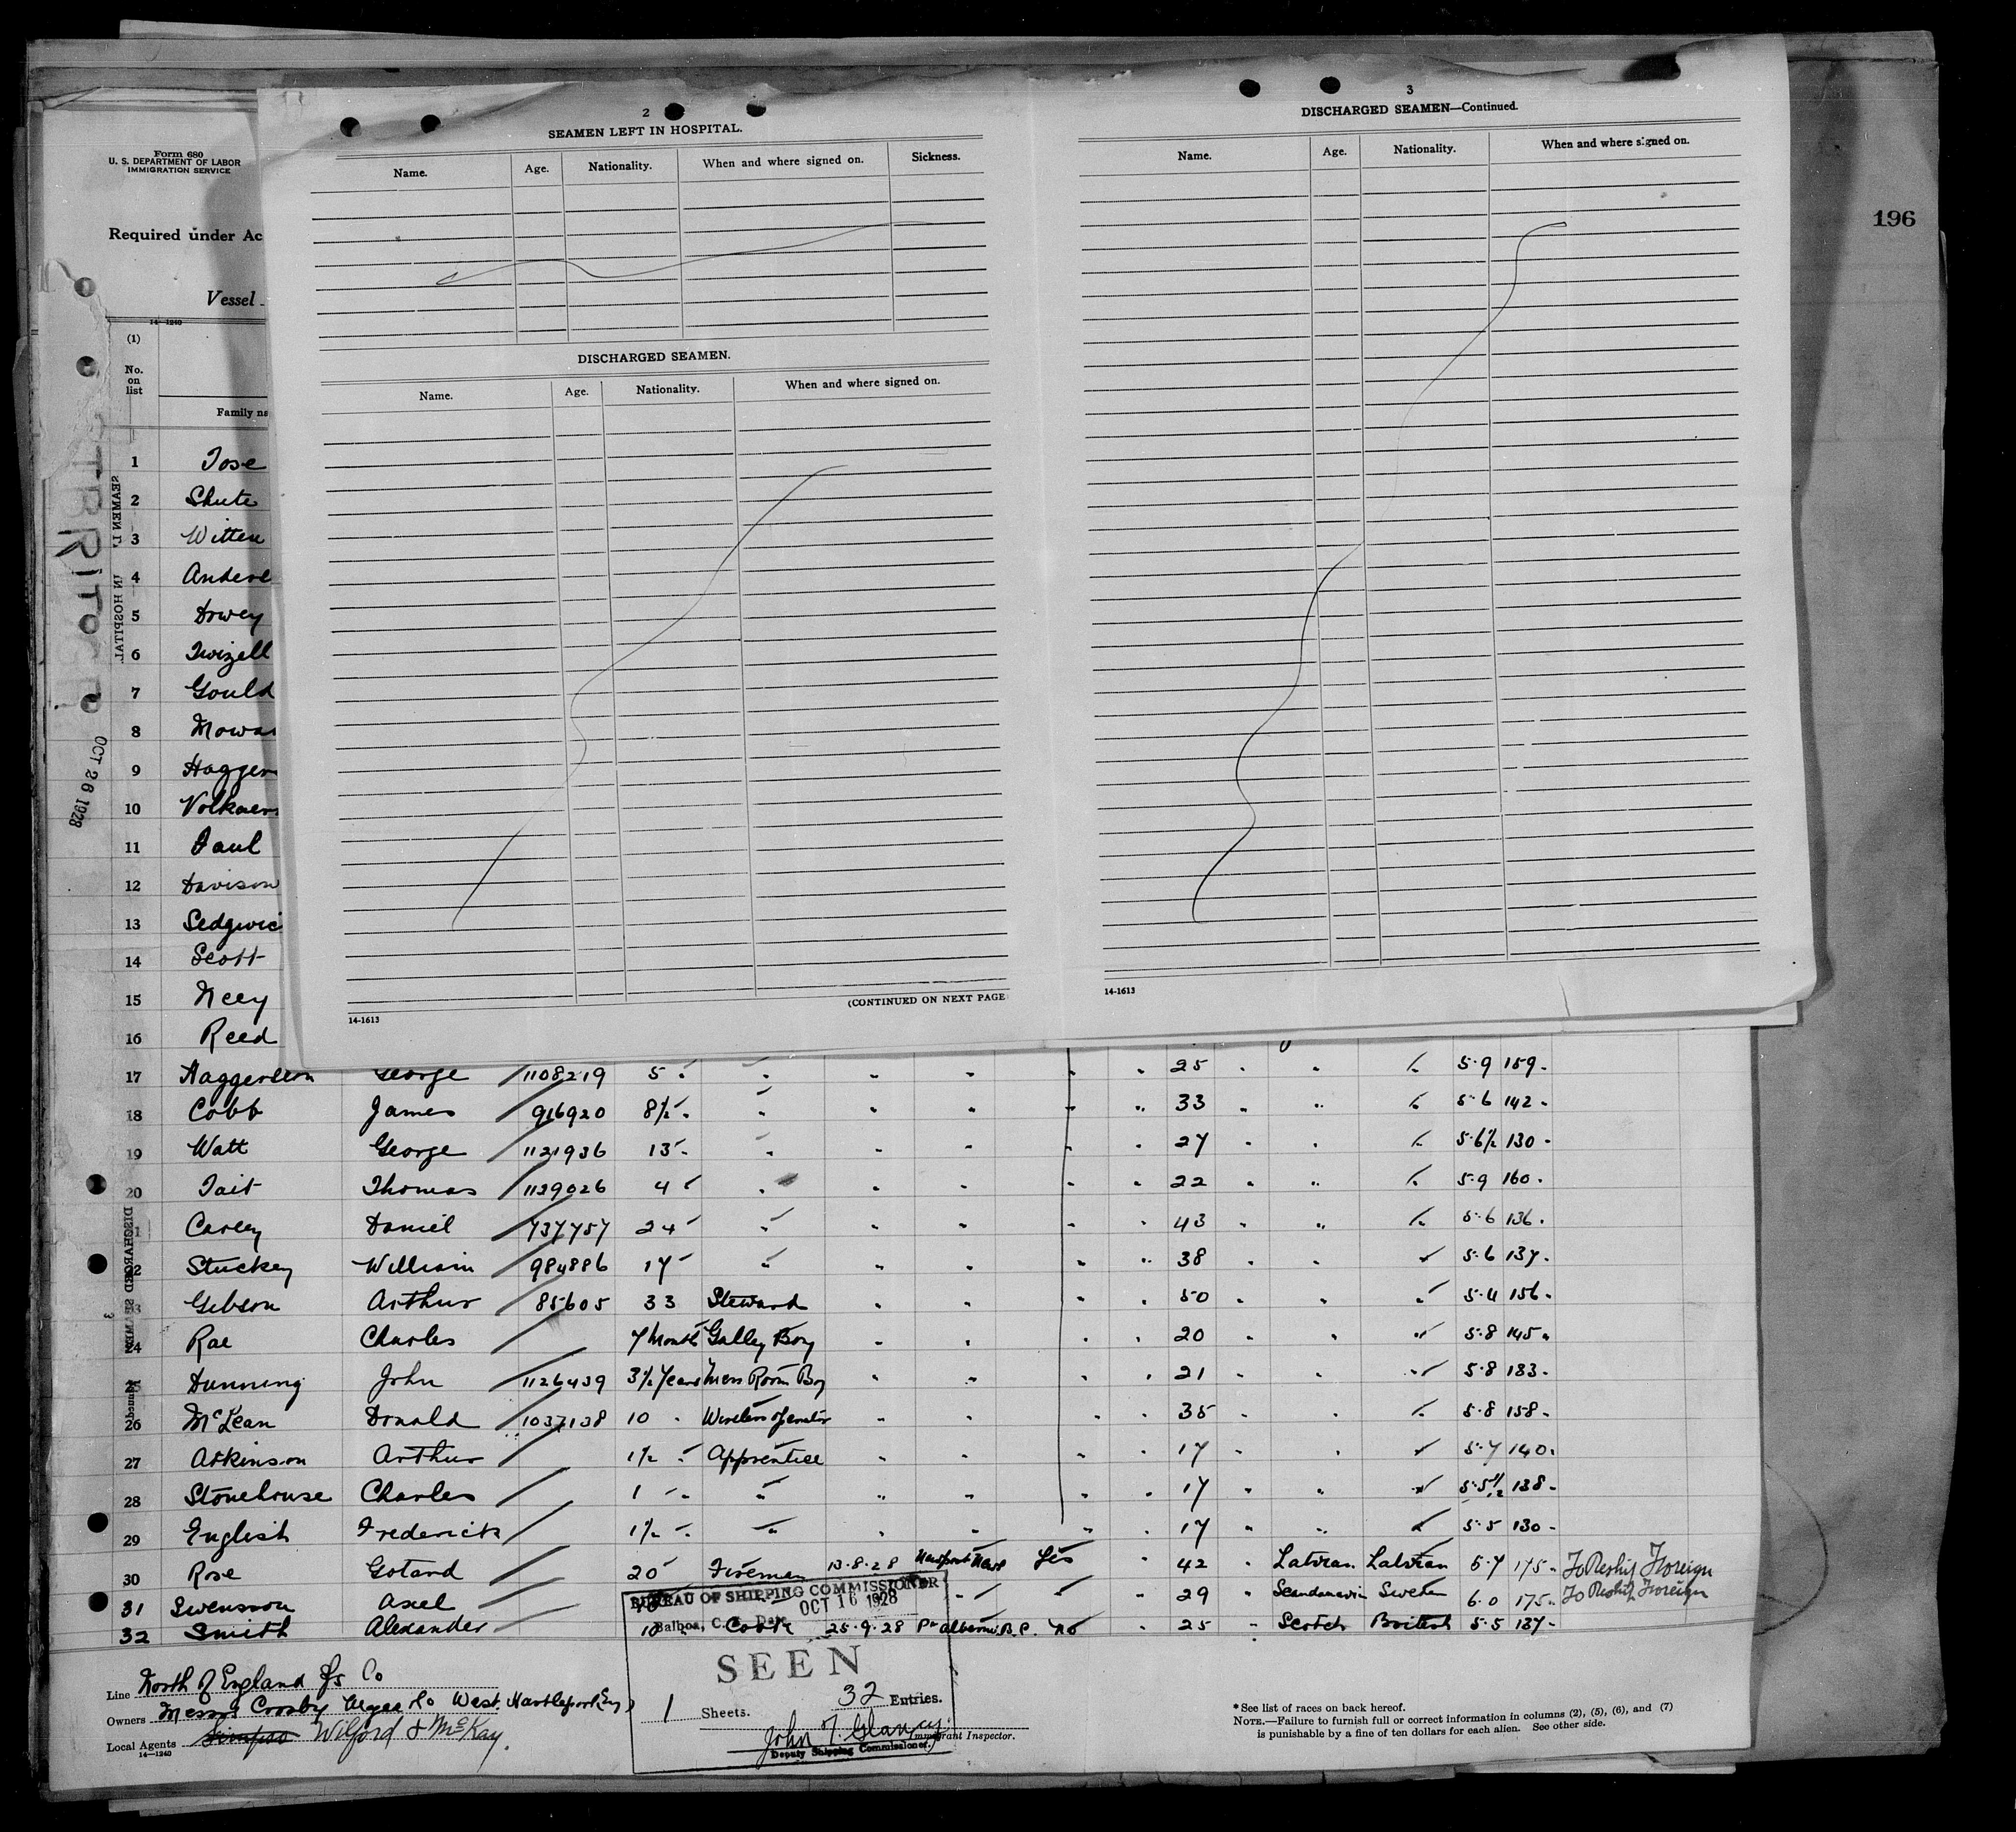 196
Form 680
U. S. DEPARTMENT OF LABOR
IMMIGRATION SERVICE
Required under Ac
Vessel
14—1240
(1)
No. on list
Family na
2
SEAMEN LEFT IN HOSPITAL.
Name. Age. Nationality. When and where signed on. Sickness.
DISCHARGED SEAMEN.
Name. Age. Nationality. When and where signed on.
(CONTINUED ON NEXT PAGE
14-1613
3
DISCHARGED SEAMEN—Continued.
Name. Age. Nationality. When and where signed on.
14-1613
OCT 26 1928
SEAMEN L IN HOSPITAL.
DISCHARGED SEAMEN
1 Tose
2 Shute
3 Witten
4 Anders
5 Drwey
6 Twizell
7 Gould
8 Mowa
9 Hagger
10 Volkaer
11 Paul
12 Davison
13 Sedgwic
14 Scott
15 Neey
16 Reed
17 Haggerston George 1108219 5 " " " " " " 25 " " " 5·9 159
18 Cobb James 916920 8½ " " " " " " 33 " " " 5·6 142
19 Watt George 1121936 13 " " " " " " 27 " " " 5·6½ 130
20 Tait Thomas 1129026 4 " " " " " " 22 " " " 5·9 160
21 Carey Daniel 737757 24 " " " " " 43 " " " 5·6 136
22 Stuckey William 984886 17 " " " " " 38 " " " 5·6 137
23 Gibson Arthur 85605 33 Steward " " " " 50 " " " 5·4 156
24 Rae Charles 7 Month Galley Boy " " " " 20 " " " 5·8 145
25 Dunning John 1126439 3½ Years Mess Room Boy " " " " 21 " " " 5·8 133
26 McLean Donald 1037138 10 " Wireless Operator " " " " 35 " " " 5·8 158
27 Atkinson Arthur 1½ " Apprentice " " " " 17 " " " 5·7 140
28 Stonehouse Charles 1 " " " " " " 17 " " " 5·5½ 138
29 English Frederick 1½ " " " " " " 17 " " " 5·5 130
30 Rose Gotard 20 Fireman 13·8·28 Newport Yes " 42 " Latvian Latvian 5·7 175 To Reship Foreign
31 Swensson Axel " " " 29 " Scandanavin Sweden 6·0 175 To Reship Foreign
32 Smith Alexander Cook 25·9·28 Pt Alberni B.C. no " 25 " Scotch British 5·5 137
BUREAU OF SHIPPING COMMISSIONER
Balboa, C. Z. Date OCT 16 1928
SEEN
1 Sheets. 32 Entries.
John J. Glancy
Deputy Shipping Commissioner.
Immigrant Inspector.
Line North of England SS Co
Owners Messrs Crosby Magee Co West Hartlepool (Eng)
Local Agents Simpson Wilford & McKay.
14—1240
*See list of races on back hereof.
NOTE.—Failure to furnish full or correct information in columns (2), (5), (6), and (7)
is punishable by a fine of ten dollars for each alien. See other side.